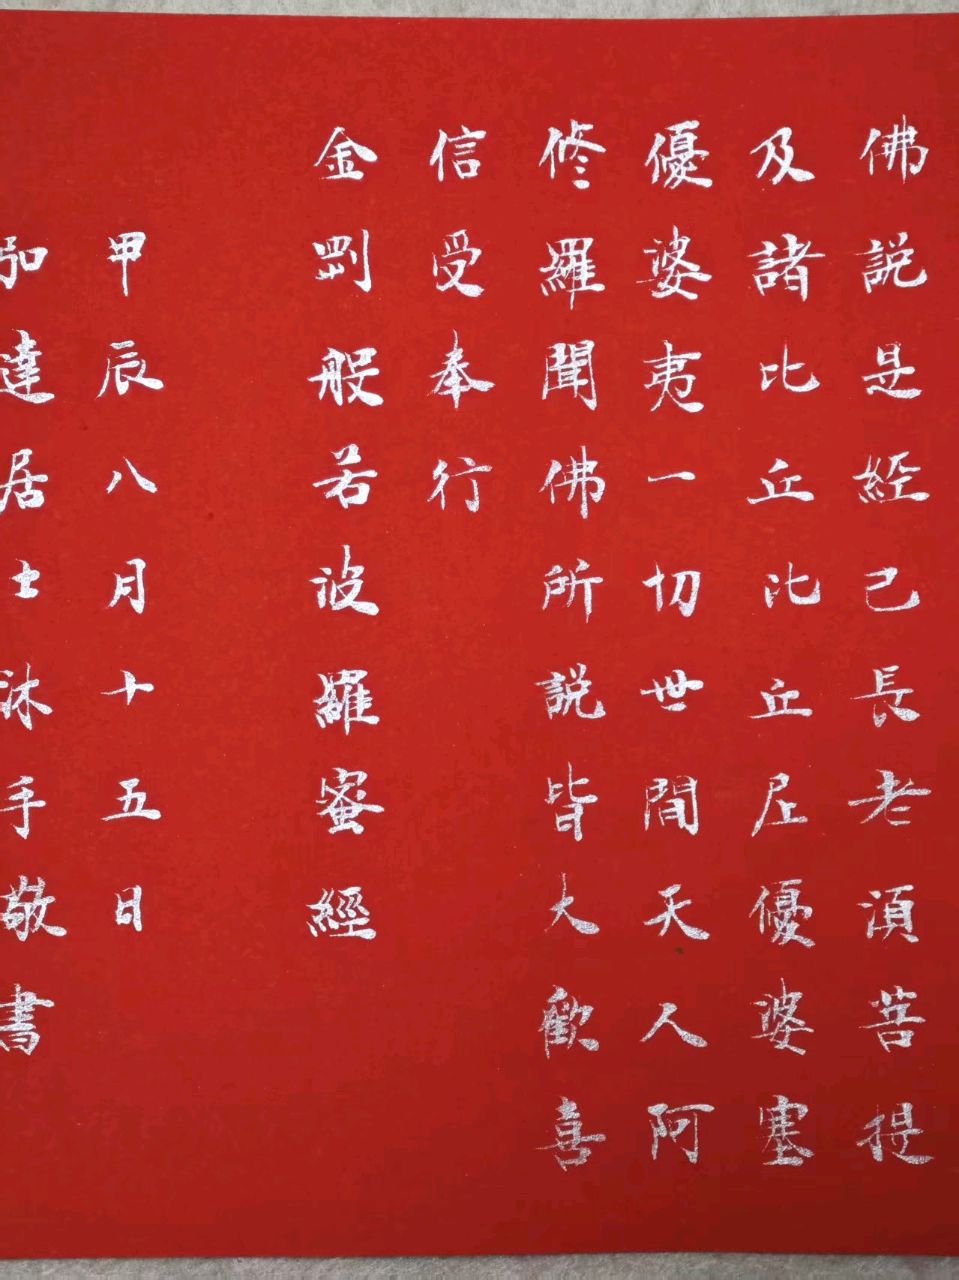 佛説是經已長老湏菩提
及諸比丘比丘尼優婆塞
優婆夷一切世間天人阿
修羅聞佛所説皆大歡喜
信受奉行
金剛般若波羅蜜經
甲辰八月十五日
弘達居士沐手敬書